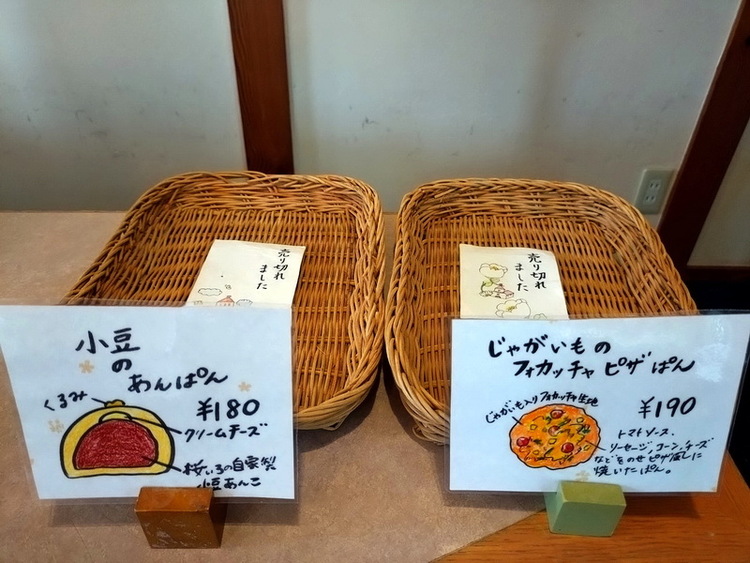 売り切れ
ました
売り切れ
ました
小豆
の
あんぱん
くるみ
¥180
クリームチーズ
桜いろの自家製
小豆あんこ
じゃがいもの
フォカッチャピザぱん
じゃがいも入りフォカッチャ生地
¥190
トマトソース、
ソーセージ、コーン、チーズ
などをのせピザ風に
焼いたぱん。